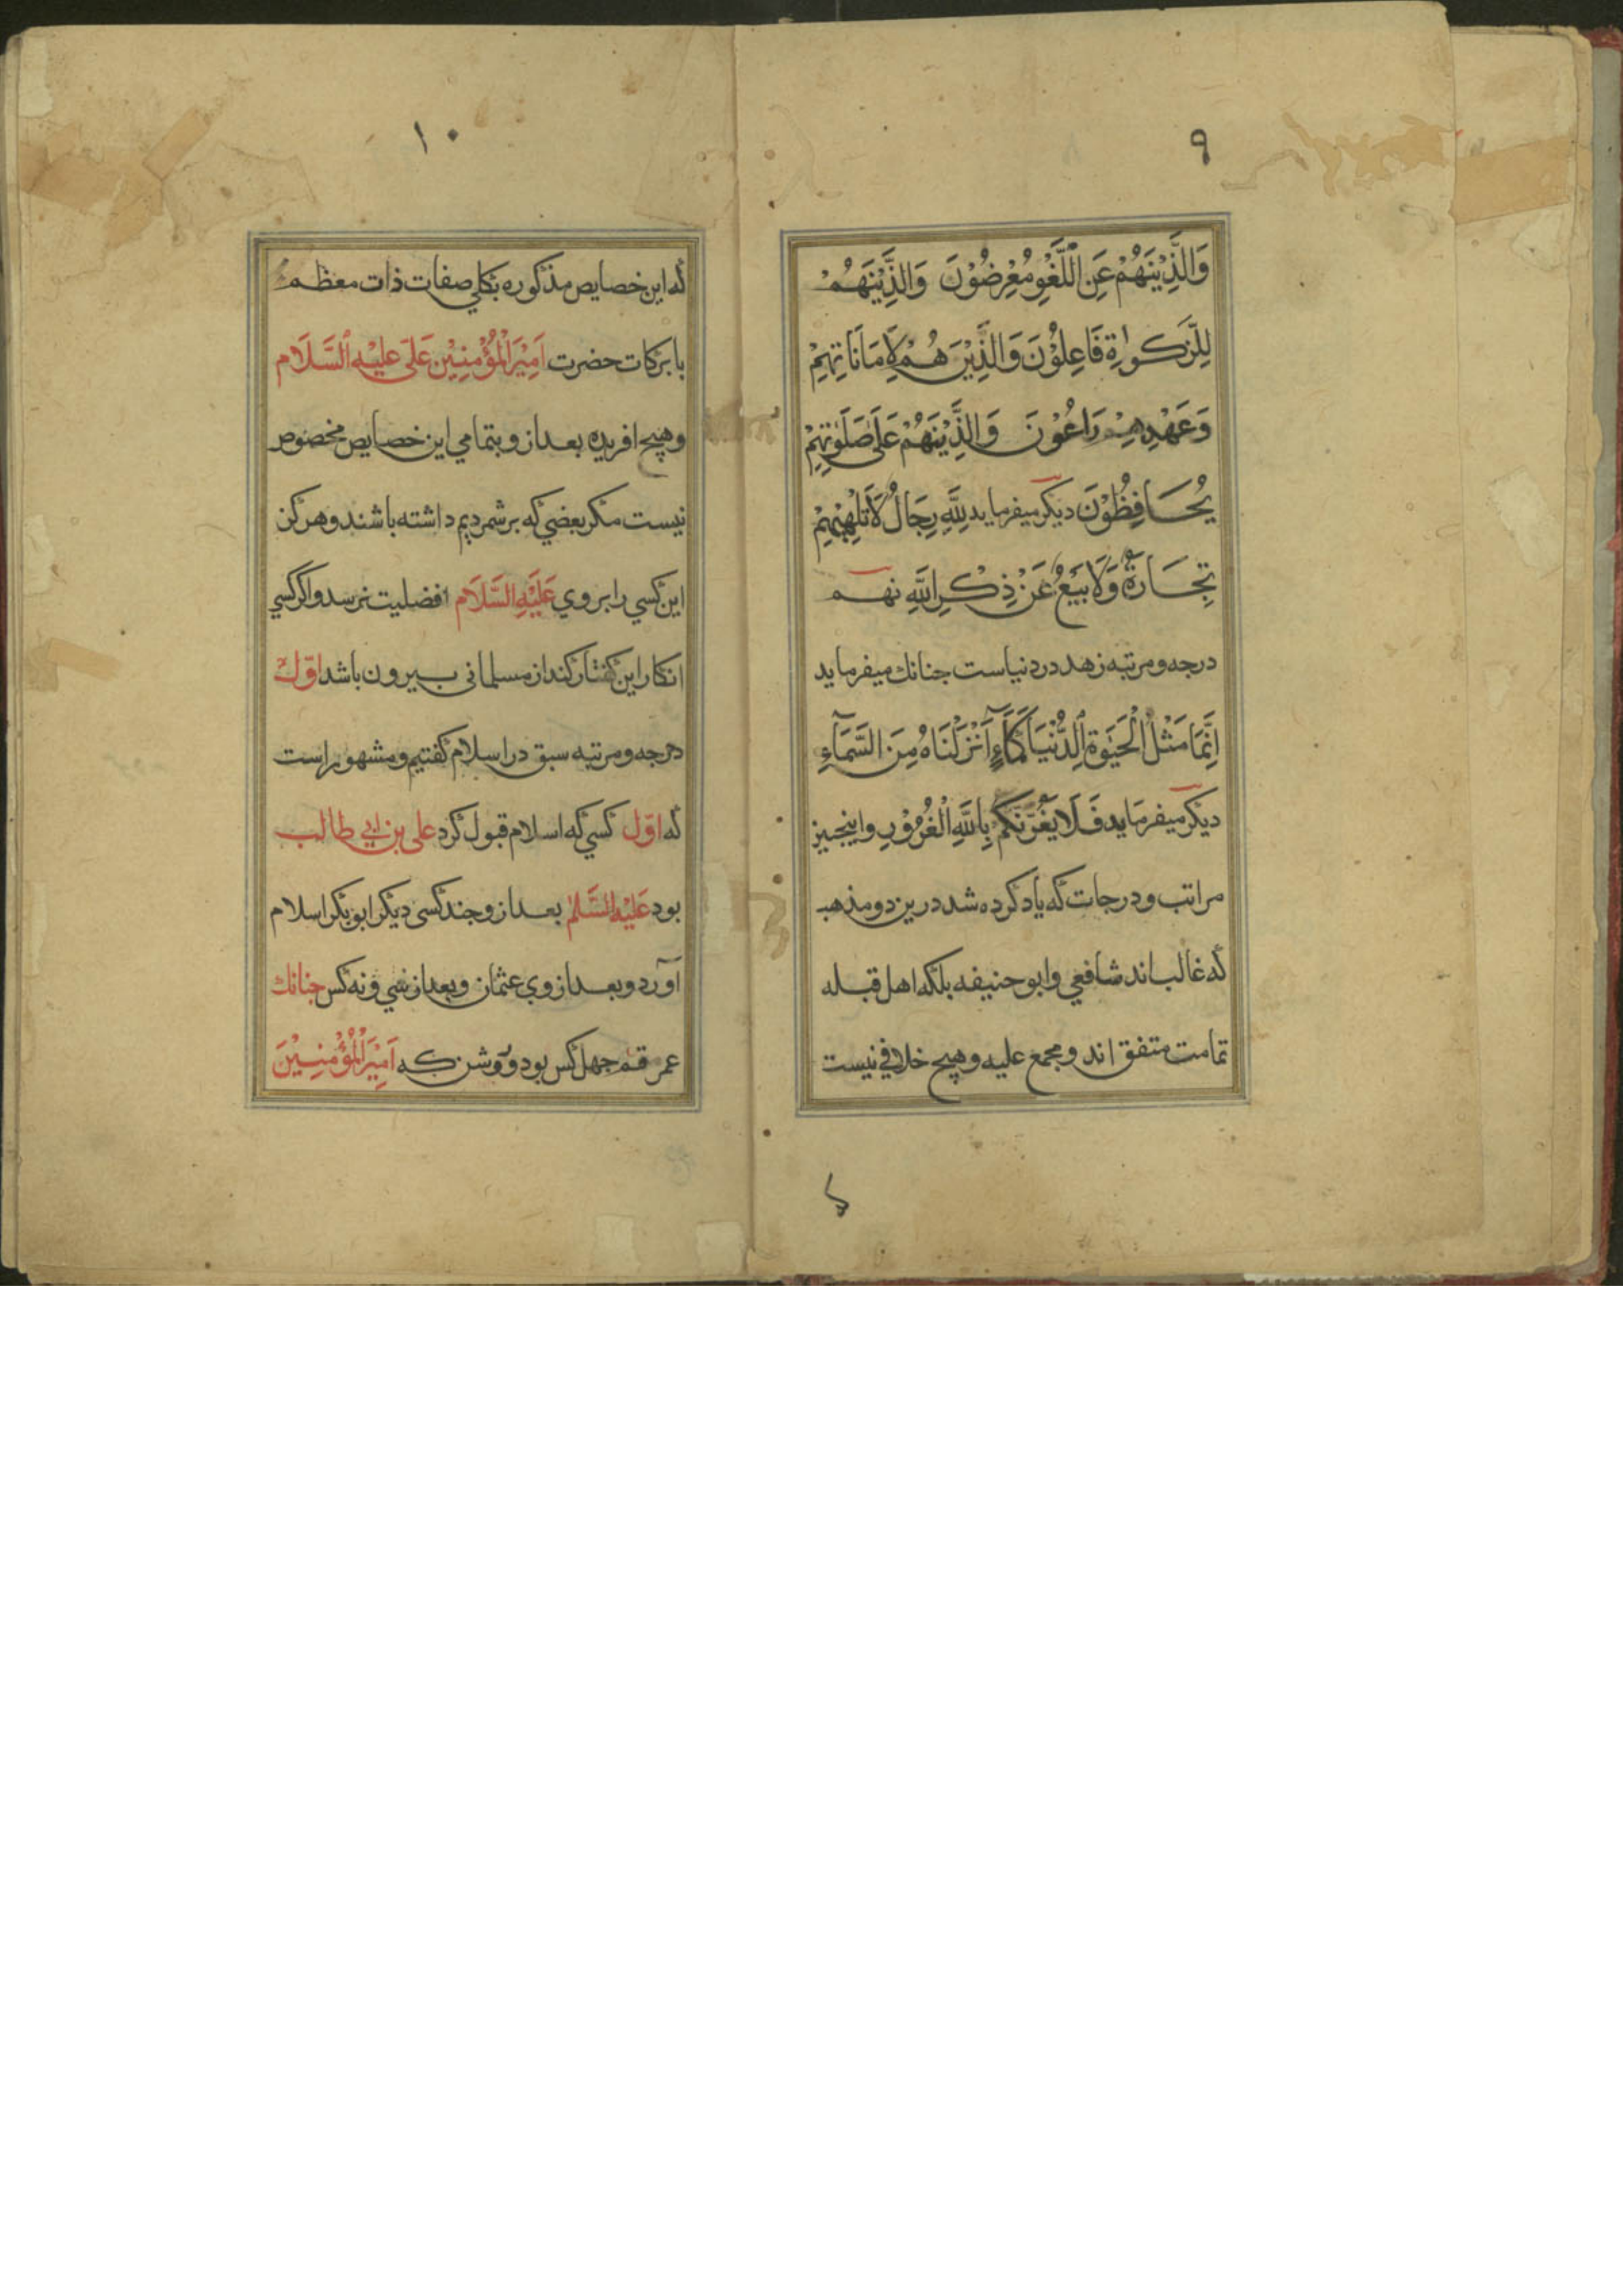 ٩
وَالَّذِيْنَهُمْ عَنِ اللَّغْوِ مُعْرِضُوْنَ وَالَّذِيْنَهُمْ
لِلزَّكواةِ فَاعِلُوْنَ وَالَّذِيْنَ هُمْ لِاَمَانَاتِهِمْ
وَعَهْدِهِمْ رَاعُوْنَ وَالَّذِيْنَهُمْ عَلَى صَلَوٰتِهِمْ
يُحَافِظُوْنَ ديكر ميفرمايد لِلَّهِ رِجَالٌ لَا تُلْهِيْهِمْ
تِجَارَةٌ وَلَا بَيْعٌ عَنْ ذِكْرِ اللَّهِ نهم
درجه و مرتبه زهد در دنياست جنانك ميفرمايد
اِنَّمَا مَثَلُ الْحَيَوةِ الدُّنْيَا كَمَآءٍ اَنْزَلْنَاهُ مِنَ السَّمَآءِ
ديكر ميفرمايد فَلَا يَغُرَّنَّكُمْ بِاللَّهِ الْغُرُوْرِ و اينجيز
مراتب و درجات كه ياد كرده شد درين دو مذهب
كه غالب اند شافعي و ابو حنيفه بلكه اهل قبله
تمامت متفق اند و مجمع عليه و هيچ خلافي نيست
١٠
كه اين خصايص مذكوره بكلي صفات ذات معظم
با بركات حضرت اَمِيْرَ الْمُؤْمِنِيْن عَلى عليْهِ السَّلَام
و هيچ افريده بعد ازو بتمامي اين خصايص مخصوص
نيست مكر بعضي كه بر شمرديم داشته باشند و هركز
اين كسي را بر وي عَلَيْهِ السَّلَام افضليت نرسد و اكر كسي
انكار اين كفتار كند از مسلماني بيرون باشد اوّل
درجه و مرتبه سبق در اسلام كفتيم و مشهور است
كه اوّل كسي كه اسلام قبول كرد على بن ابي طالب
بود عَلَيْهِ السَّلم بعد ازو جند كسى ديكر ابوبكر اسلام
آورد و بعد از وي عثمان و بعد از سي و نه كس جنانك
عمر جهل كس بود و روشن كه اَمِيْرَ الْمُؤْمِنِيْنَ